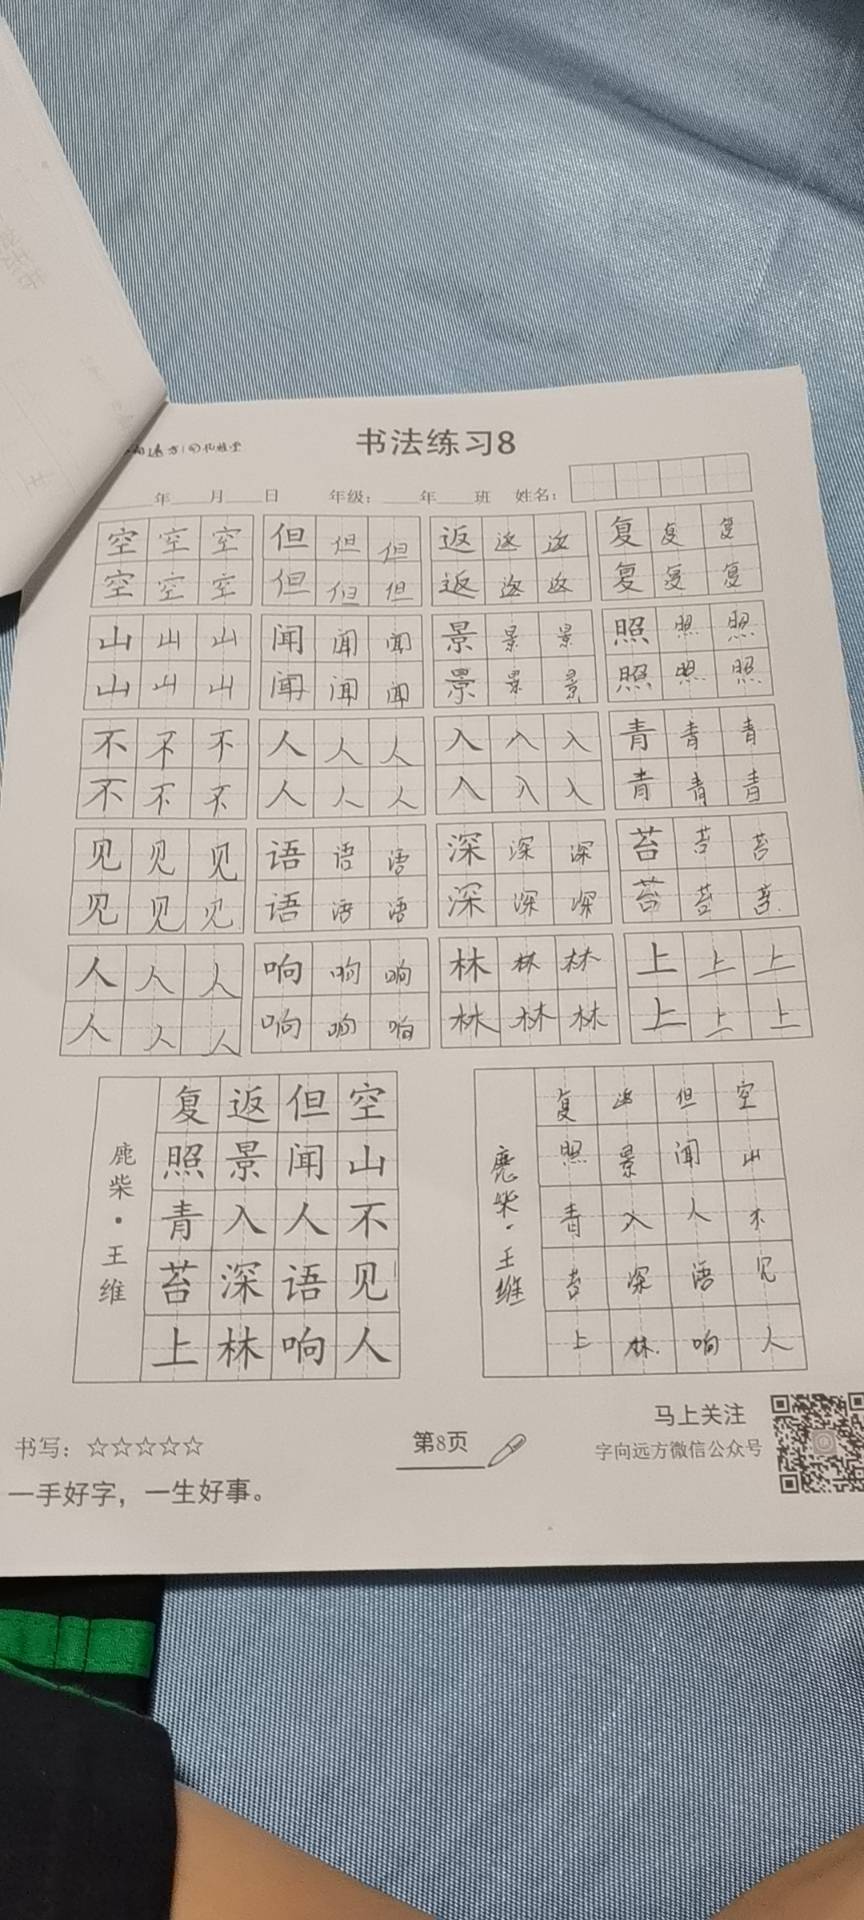 书法练习8
年 月 日 年级： 年 班 姓名：
空 空 空 但 但 但 返 返 返 复 复 复
空 空 空 但 但 但 返 返 返 复 复 复
山 山 山 闻 闻 闻 景 景 景 照 照 照
山 山 山 闻 闻 闻 景 景 景 照 照 照
不 不 不 人 人 人 入 入 入 青 青 青
不 不 不 人 人 人 入 入 入 青 青 青
见 见 见 语 语 语 深 深 深 苔 苔 苔
见 见 见 语 语 语 深 深 深 苔 苔 苔
人 人 人 响 响 响 林 林 林 上 上 上
人 人 人 响 响 响 林 林 林 上 上 上
空山不见人
但闻人语响
返景入深林
复照青苔上
鹿柴·王维
空山不见人
但闻人语响
返景入深林
复照青苔上
鹿柴·王维
书写：☆☆☆☆☆
一手好字，一生好事。
第8页
马上关注
字向远方微信公众号